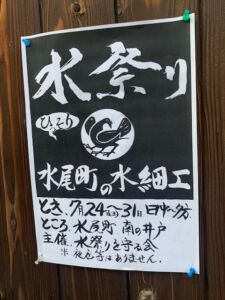 水祭り
ひとり
水尾町の水細工
とき、7月24(金)〜31日 日中〜夕方
ところ 水尾町 南の井戸
主催、水祭りを守る会
※夜店等はありません。